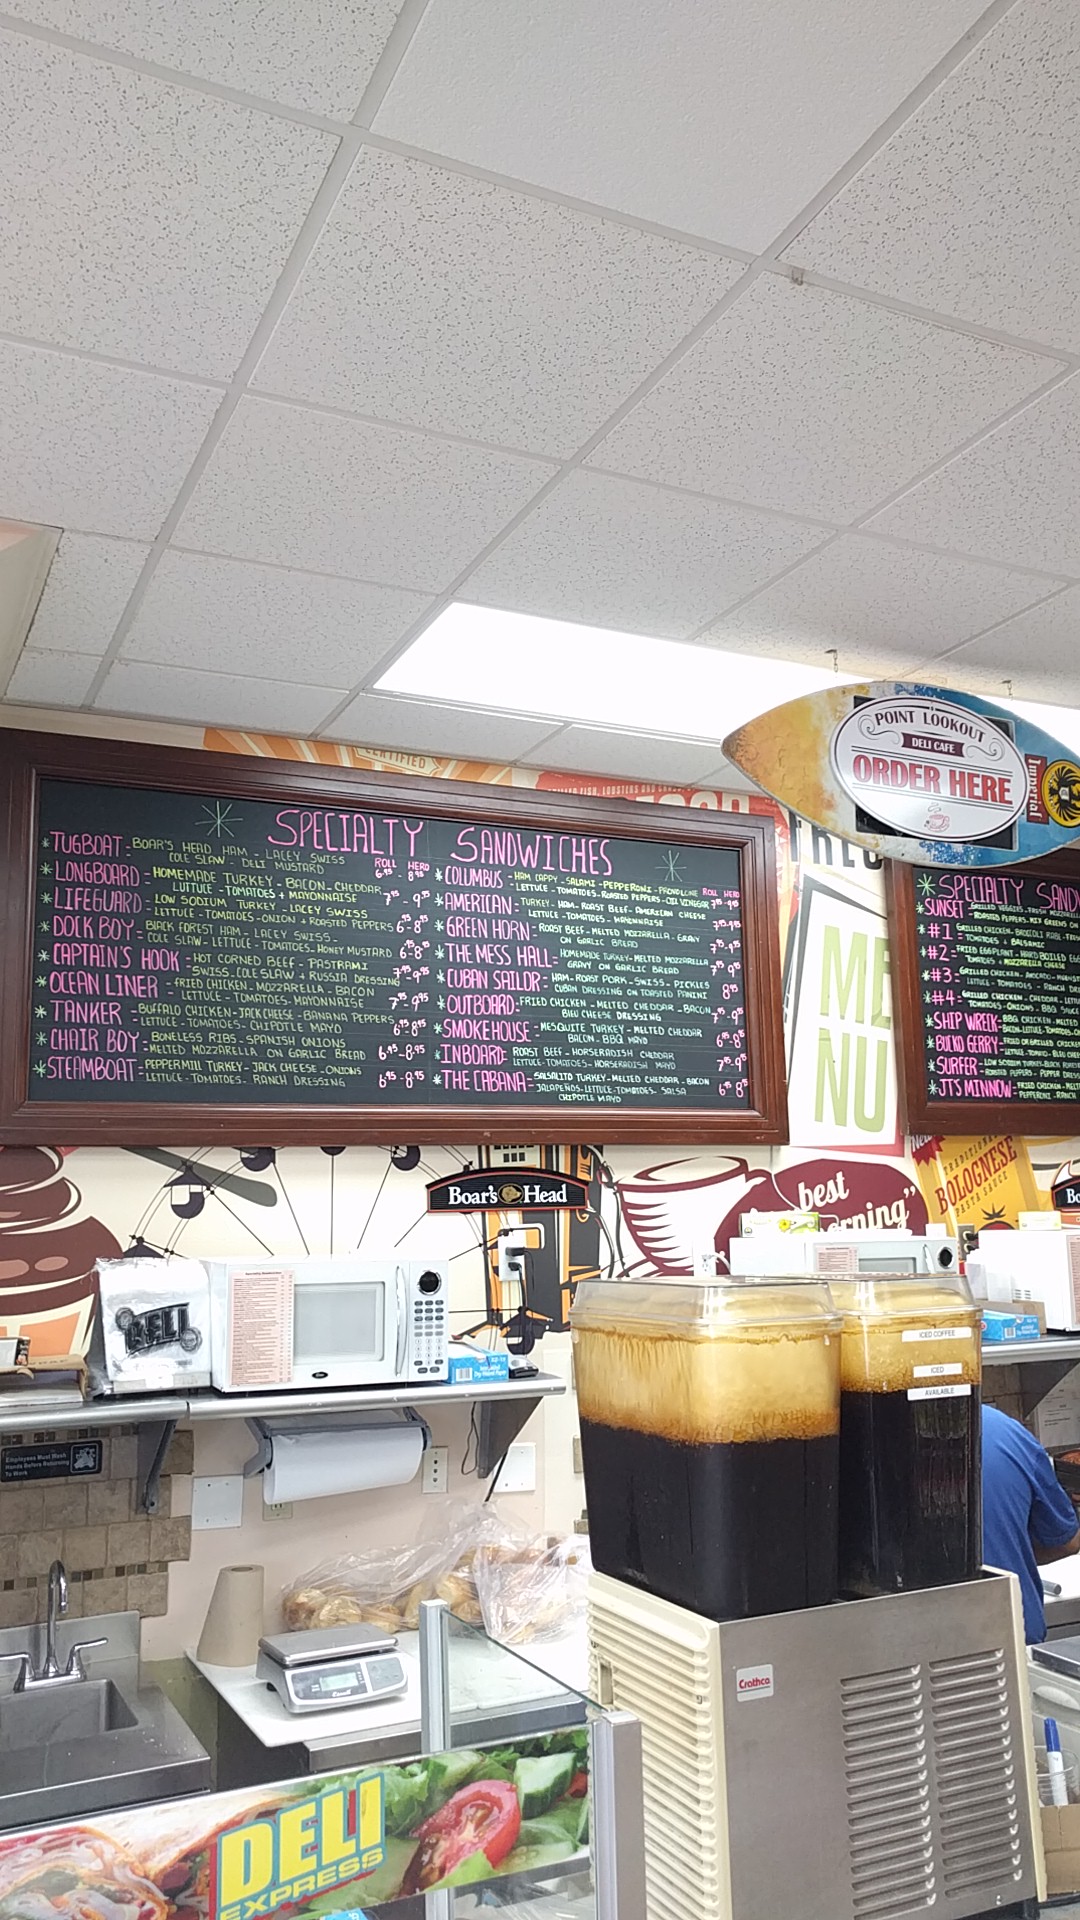 CERTIFIED
SPECIALTY SANDWICHES
ROLL HERO
*TUGBOAT - BOAR'S HEAD HAM - LACEY SWISS
COLE SLAW - DELI MUSTARD 6.95 - 8.95
*LONGBOARD - HOMEMADE TURKEY - BACON - CHEDDAR
LUTTUCE - TOMATOES + MAYONNAISE 7.95 - 9.95
*LIFEGUARD - LOW SODIUM TURKEY - LACEY SWISS
LETTUCE - TOMATOES - ONION + ROASTED PEPPERS
*DOCK BOY - BLACK FOREST HAM - LACEY SWISS -
COLE SLAW - LETTUCE - TOMATOES - HONEY MUSTARD
*CAPTAIN'S HOOK - HOT CORNED BEEF - PASTRAMI
SWISS - COLE SLAW + RUSSIA DRESSING 7.95 - 9.95
*OCEAN LINER - FRIED CHICKEN - MOZZARELLA - BACON
LETTUCE - TOMATOES - MAYONNAISE 7.95 - 9.95
*TANKER - BUFFALO CHICKEN - JACK CHEESE - BANANA PEPPERS
LETTUCE - TOMATOES - CHIPOTLE MAYO 6.95 - 8.95
*CHAIR BOY - BONELESS RIBS - SPANISH ONIONS
MELTED MOZZARELLA ON GARLIC BREAD 6.95 - 8.95
*STEAMBOAT - PEPPERMILL TURKEY - JACK CHEESE - ONIONS
LETTUCE - TOMATOES - RANCH DRESSING 6.95 - 8.95
ROLL HERO
*COLUMBUS - HAM CAPPY - SALAMI - PEPPERONI - PROVOLONE
LETTUCE - TOMATOES - ROASTED PEPPERS - OIL VINEGAR
*AMERICAN - TURKEY - HAM - ROAST BEEF - AMERICAN CHEESE
LETTUCE - TOMATOES - MAYONNAISE
*GREEN HORN - ROAST BEEF - MELTED MOZZARELLA - GRAVY
ON GARLIC BREAD
*THE MESS HALL - HOMEMADE TURKEY - MELTED MOZZARELLA
GRAVY ON GARLIC BREAD
*CUBAN SAILOR - HAM - ROAST PORK - SWISS - PICKLES
CUBAN DRESSING ON TOASTED PANINI 8.95
*OUTBOARD - FRIED CHICKEN - MELTED CHEDDAR - BACON
BLEU CHEESE DRESSING
*SMOKEHOUSE - MESQUITE TURKEY - MELTED CHEDDAR
BACON - BBQ MAYO
*INBOARD - ROAST BEEF - HORSERADISH CHEDDAR
LETTUCE - TOMATOES - HORSERADISH MAYO
*THE CABANA - SALSALITO TURKEY - MELTED CHEDDAR - BACON
JALAPEÑOS - LETTUCE - TOMATOES - SALSA
CHIPOTLE MAYO
POINT LOOKOUT
DELI CAFE
ORDER HERE
Imperial
ME
NU
*SPECIALTY
SUNSET - GRILLED VEGGIES - FRESH
ROASTED PEPPERS - MIX GREENS ON
*#1 - GRILLED CHICKEN - BROCCOLI RABE -
TOMATOES + BALSAMIC
*#2 - FRIED EGGPLANT - HARD BOILED
TOMATOES + MOZZARELLA CHEESE
*#3 - GRILLED CHICKEN - AVOCADO -
LETTUCE - TOMATOES - RANCH
*#4 - GRILLED CHICKEN - CHEDDAR -
TOMATOES - ONIONS - BBQ SAUCE
*SHIP WREEK - BBQ CHICKEN -
*BUCKO GERRY - FRIED OR GRILLED
*SURFER - LOW SODIUM TURKEY -
ROASTED PEPPERS - PEPPER
*JT'S MINNOW - FRIED CHICKEN -
PEPPERONI - RANCH
Boar's Head
best
New
TRADITIONAL
BOLOGNESE
PASTA SAUCE
Bo
DELI
ICED COFFEE
ICED
AVAILABLE
Employees Must Wash
Hands Before Returning
To Work
Crathco
DELI
EXPRESS